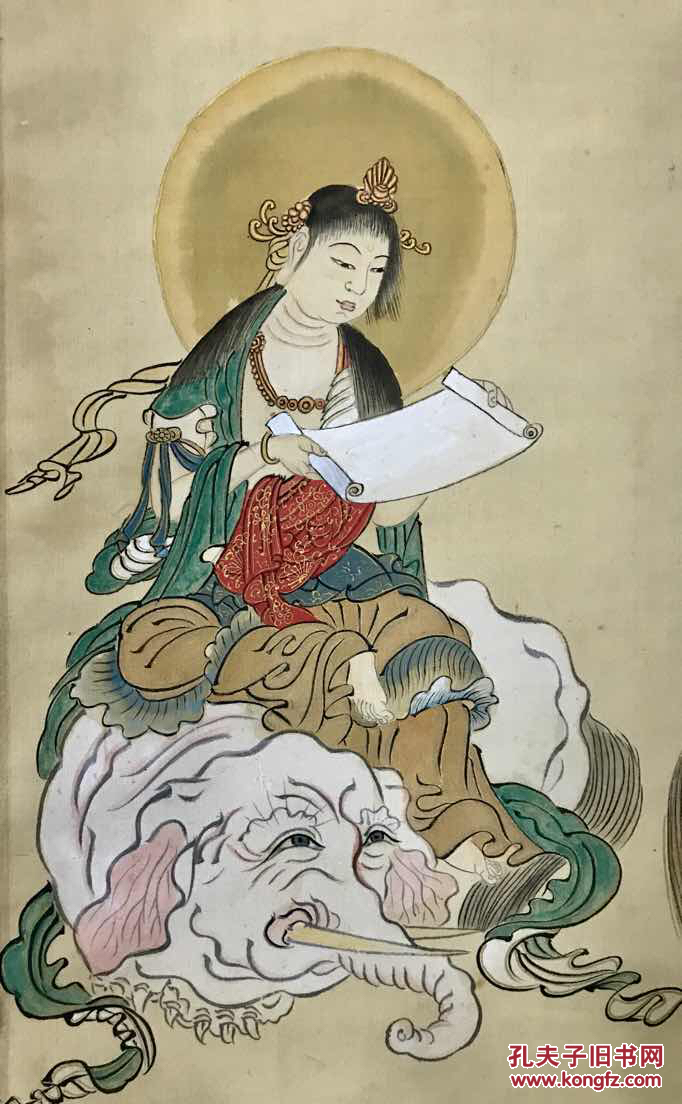 孔夫子旧书网
kongfz.com